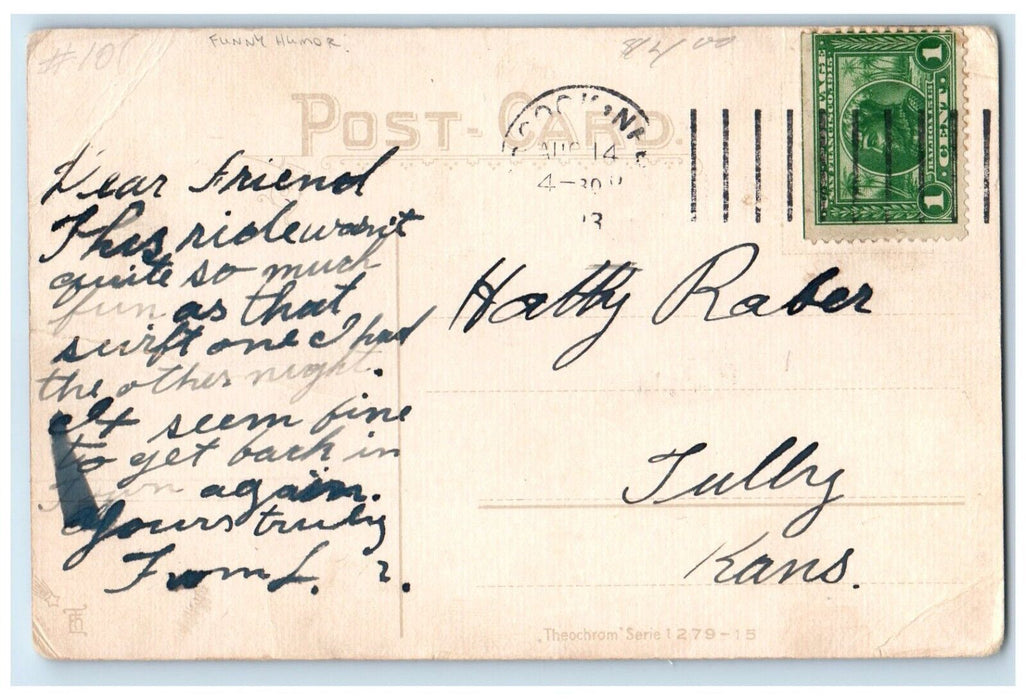 #10
FUNNY HUMOR.
POST-CARD.
AUG 14
4-30 P
13
SAN FRANCISCO, 1915
1 CENT 1
Dear Friend
This ride wasn't
quite so much
fun as that
swift one I had
the other night.
It seem fine
to get back in
Town again.
Yours truly
From L. ?.
Hatty Raber
Tully
Kans.
"Theochrom" Serie 1279-15